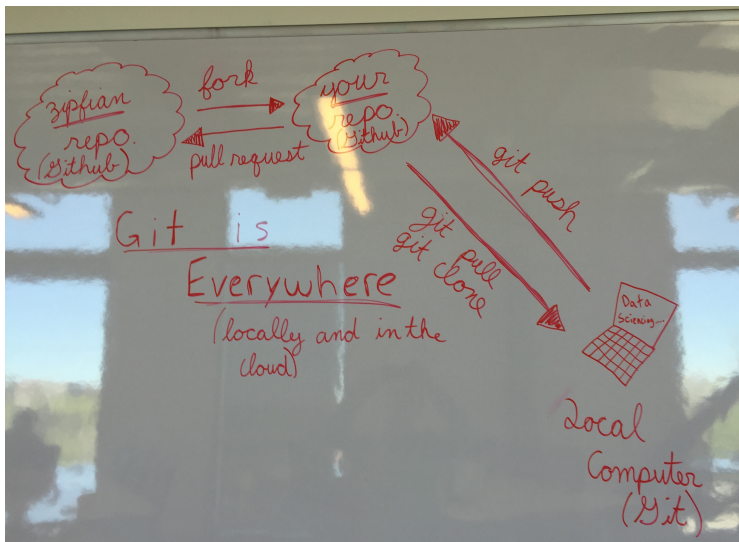 zipfian
repo.
(Github)
fork
pull request
your
repo
(Github)
git push
git pull
git clone
Git is
Everywhere
(locally and in the
cloud)
Data
Sciencing...
Local
Computer
(Git)